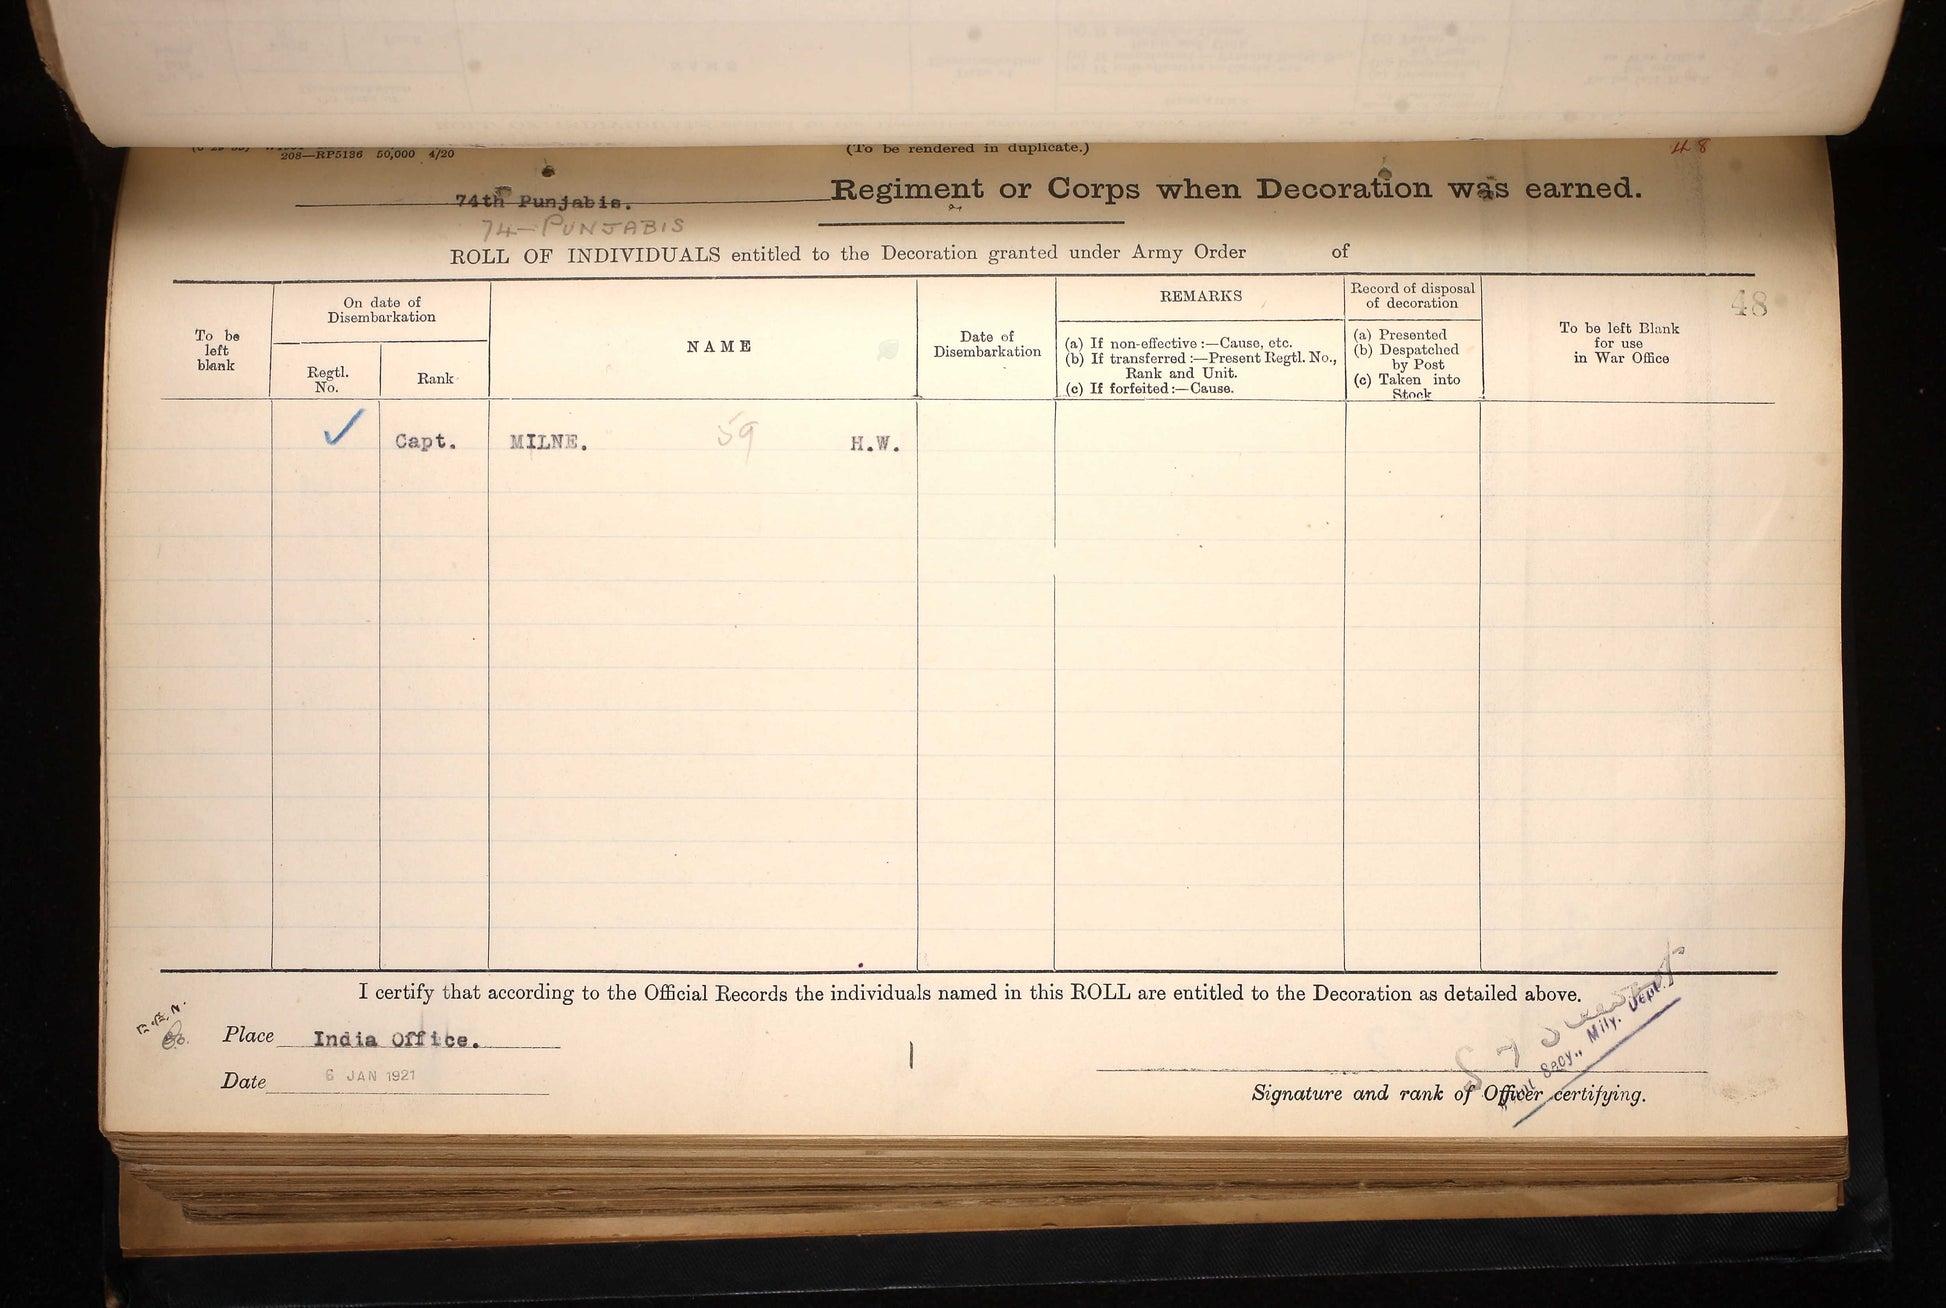 208—RP5136 50,000 4/20
(To be rendered in duplicate.)
48
74th Punjabis. Regiment or Corps when Decoration was earned.
74—PUNJABIS
ROLL OF INDIVIDUALS entitled to the Decoration granted under Army Order of
48
To be left blank
On date of Disembarkation
Regtl. No.
Rank
NAME
Date of Disembarkation
REMARKS
(a) If non-effective:—Cause, etc.
(b) If transferred:—Present Regtl. No., Rank and Unit.
(c) If forfeited:—Cause.
Record of disposal of decoration
(a) Presented
(b) Despatched by Post
(c) Taken into Stock
To be left Blank for use in War Office
✓ Capt. MILNE. 59 H.W.
I certify that according to the Official Records the individuals named in this ROLL are entitled to the Decoration as detailed above.
Place India Office.
Date 6 JAN 1921
Secy., Mily. Dept.
Signature and rank of Officer certifying.